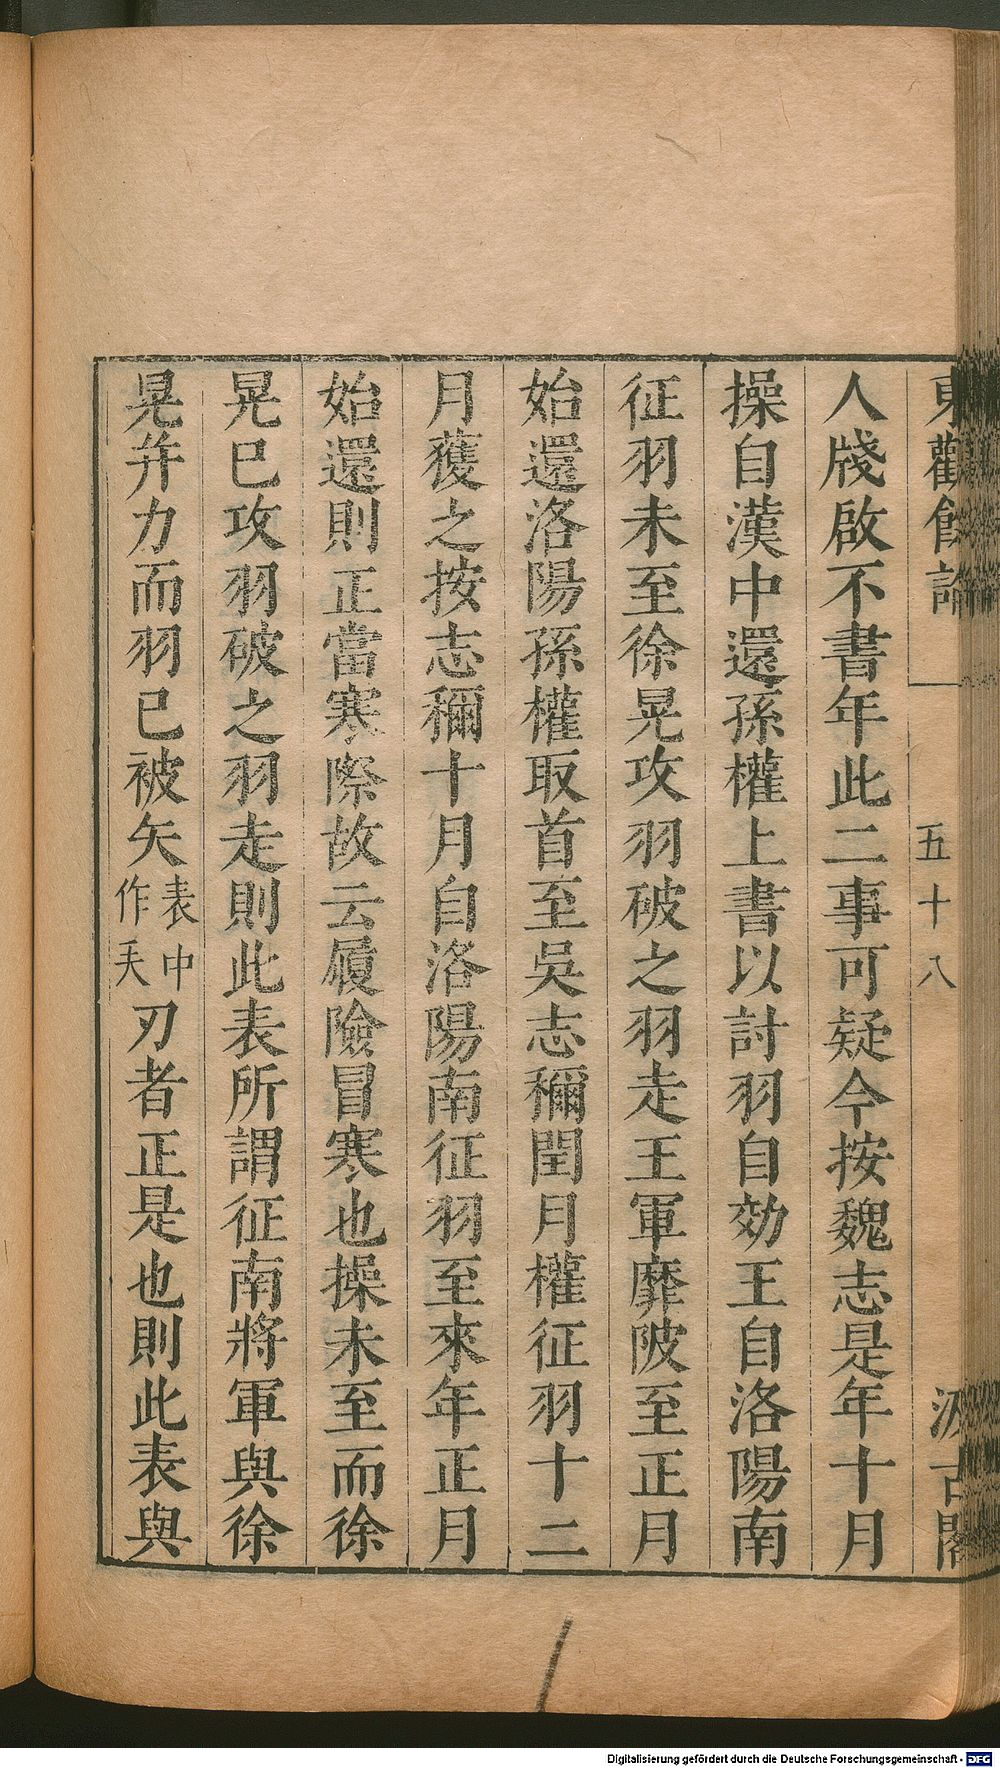 東觀餘論
五十八
汲古閣
人牋啟不書年此二事可疑今按魏志是年十月
操自漢中還孫權上書以討羽自効王自洛陽南
征羽未至徐晃攻羽破之羽走王軍靡陂至正月
始還洛陽孫權取首至吳志稱閏月權征羽十二
月獲之按志稱十月自洛陽南征羽至來年正月
始還則正當寒際故云履險冒寒也操未至而徐
晃巳攻羽破之羽走則此表所謂征南將軍與徐
晃并力而羽巳被矢表中作手刃者正是也則此表與
Digitalisierung gefördert durch die Deutsche Forschungsgemeinschaft - DFG